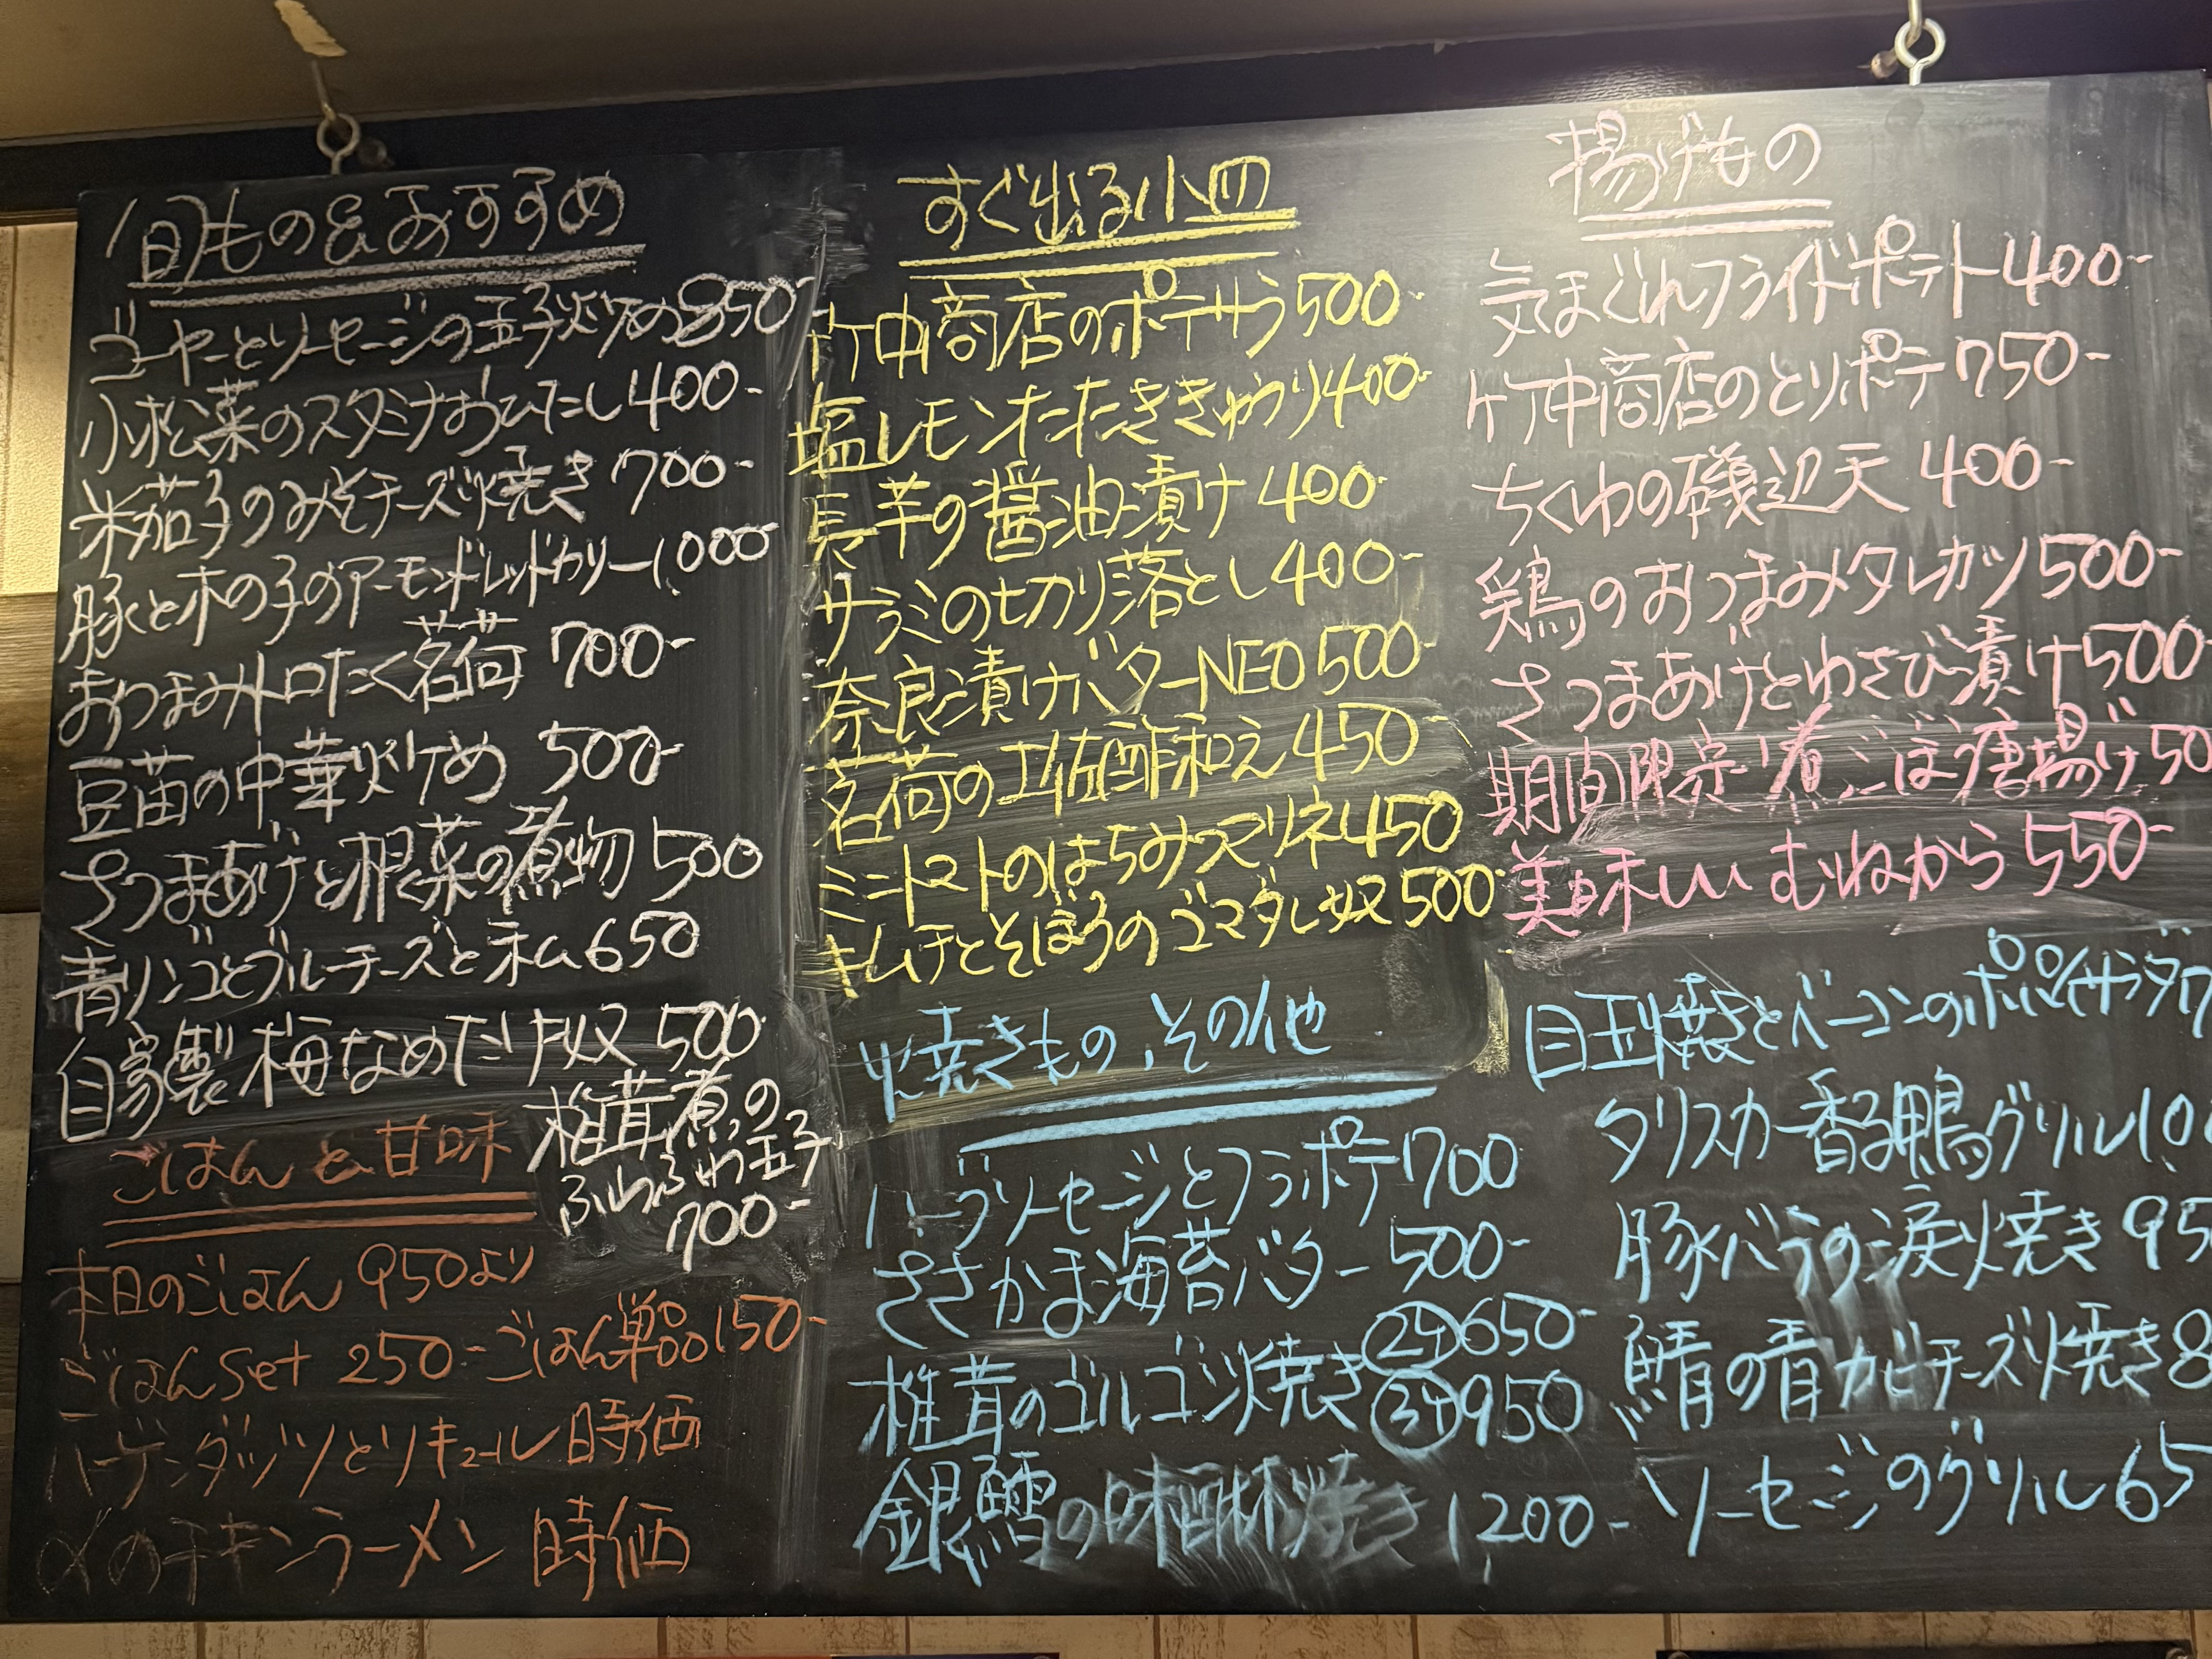 旬もの&おすすめ
ゴーヤーとソーセージの玉子炒め850-
小松菜のスタミナおひたし400-
米茄子のみそチーズ焼き700-
豚と木の子のアーモンドレッドカリー1,000-
おつまみトロたく茗荷 700-
豆苗の中華炒め 500-
さつまあげと根菜の煮物 500
青リンゴとブルーチーズと 650
自家製梅なめたけ奴 500-
椎茸煮の
ふわふわ玉子
700-
ごはんと甘味
本日のごはん 950より
ごはんset 250-ごはん単品150-
ハーゲンダッツとリキュール時価
〆のチキンラーメン 時価
すぐ出る小皿
竹中商店のポテサラ500-
塩レモンたたききゅうり400-
長芋の醤油漬け400-
サラミの切り落とし400-
奈良漬けバターNEO500-
茗荷の土佐酢和え450-
ミニトマトのはちみつマリネ450
キムチとそぼろのゴマダレ奴500-
焼きもの、その他
ハーブソーセージとフラポテ700
ささかま海苔バター 500-
椎茸のゴルゴンゾ焼き ㉔650-
950
銀鱈の味醂焼き 1,200-
揚げもの
気まぐれフライドポテト400-
竹中商店のとりポテ750-
ちくわの磯辺天 400-
鶏のおつまみタレカツ500-
さつまあげとわさび漬け500-
期間限定煮ごぼう唐揚げ50
美味しい むねから 550-
目玉焼きとベーコンのポポイサラダ7
タリスカー香る鴨グリル10
豚バラの炭焼き 95
鯖の青カビチーズ焼き8
ソーセージのグリル65